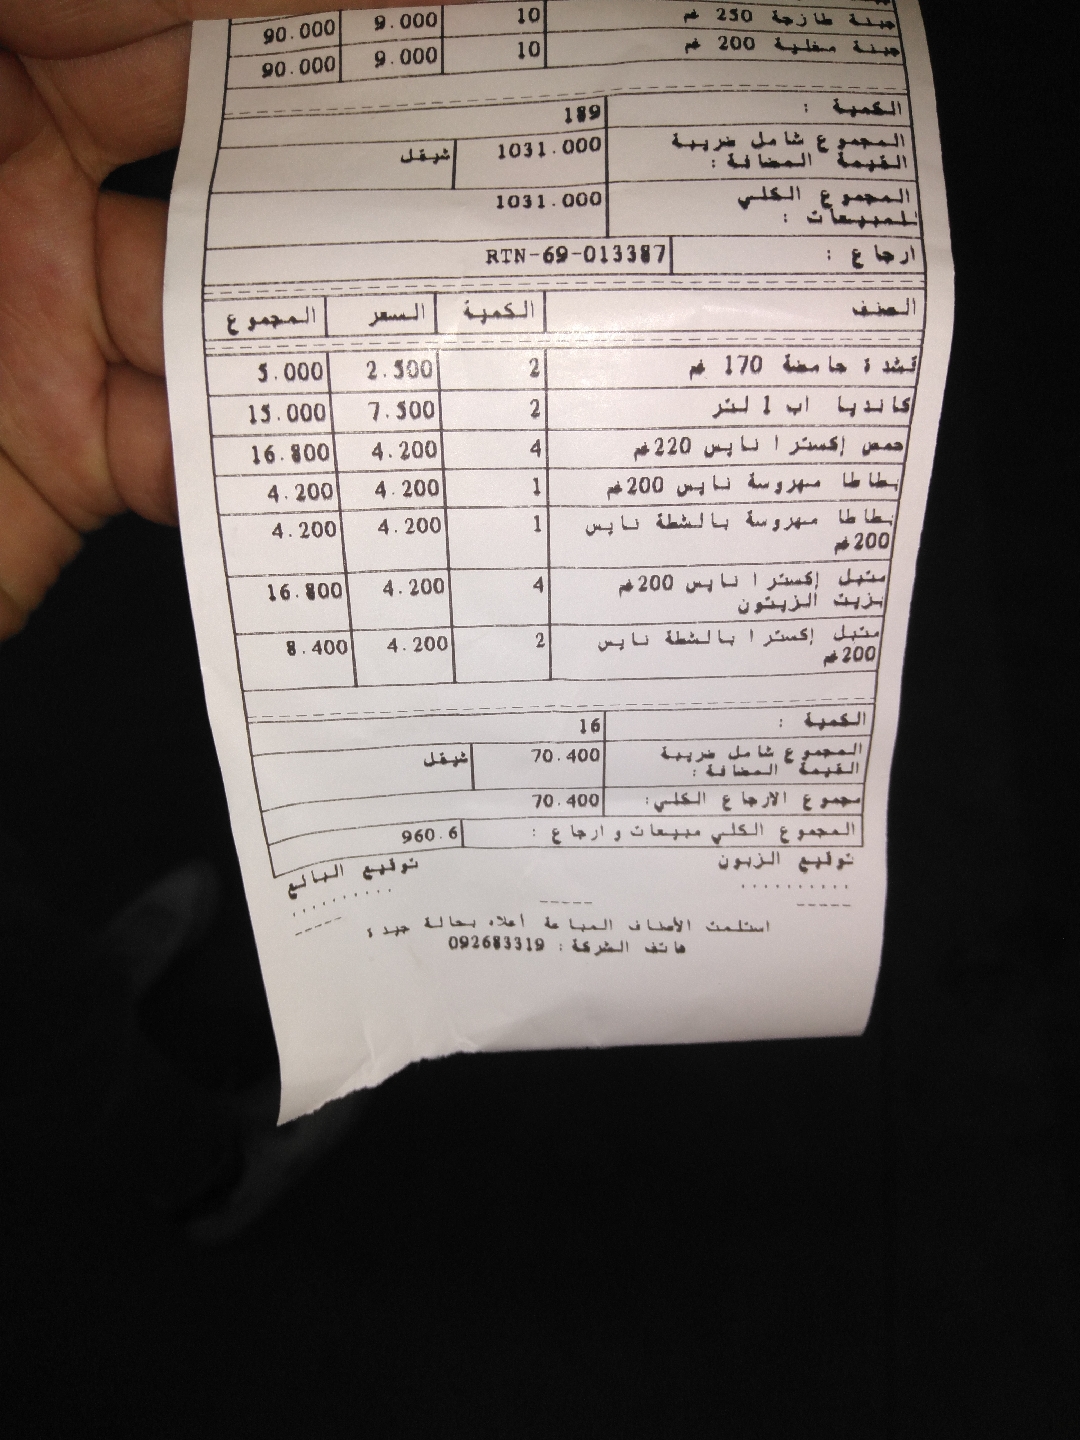 جبنة طازجة 250 غم 10 9.000 90.000
جبنة مغلية 200 غم 10 9.000 90.000
الكمية : 189
المجموع شامل ضريبة 1031.000 شيقل
القيمة المضافة :
المجموع الكلي 1031.000
للمبيعات :
ارجاع : RTN-69-013387
الصنف الكمية السعر المجموع
قشدة حامضة 170 غم 2 2.500 5.000
كانديا اب 1 لتر 2 7.500 15.000
حمص إكسترا نايس 220غم 4 4.200 16.800
بطاطا مهروسة نايس 200غم 1 4.200 4.200
بطاطا مهروسة بالشطة نايس 1 4.200 4.200
200غم
متبل إكسترا نايس 200غم 4 4.200 16.800
بزيت الزيتون
متبل إكسترا بالشطة نايس 2 4.200 8.400
200غم
الكمية : 16
المجموع شامل ضريبة 70.400 شيقل
القيمة المضافة :
مجموع الارجاع الكلي: 70.400
المجموع الكلي مبيعات و ارجاع : 960.6
توقيع الزبون توقيع البائع
استلمت الأصناف المباعة أعلاه بحالة جيدة
هاتف الشركة : 092683319